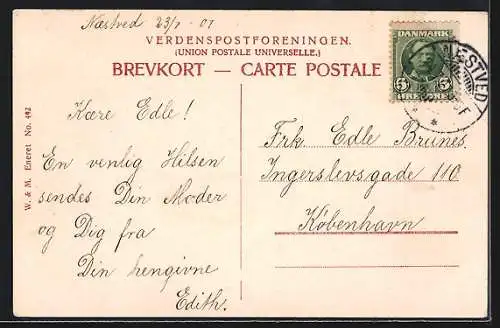 Næstved 23/7 - 07
VERDENSPOSTFORENINGEN.
(UNION POSTALE UNIVERSELLE.)
BREVKORT — CARTE POSTALE
DANMARK
5 5
NÆSTVED
W. & M. Eneret No. 492
Kære Edle!
En venlig Hilsen
sendes Din Moder
og Dig fra
Din hengivne
Edith.
Frk. Edle Brunes.
Ingerslevsgade 110
København